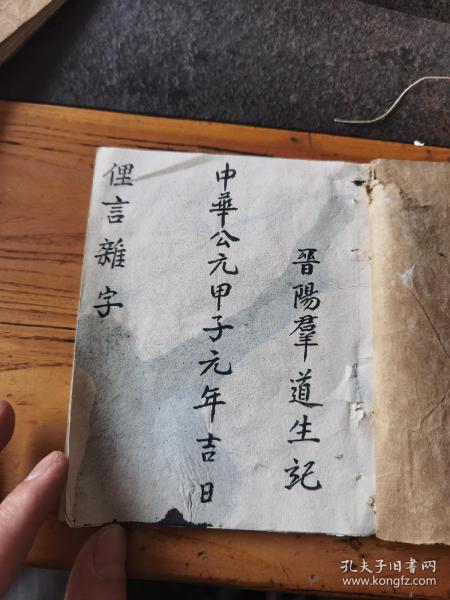 晋陽羣道生記
中華公元甲子元年吉日
俚言雜字
孔夫子旧书网
www.kongfz.com